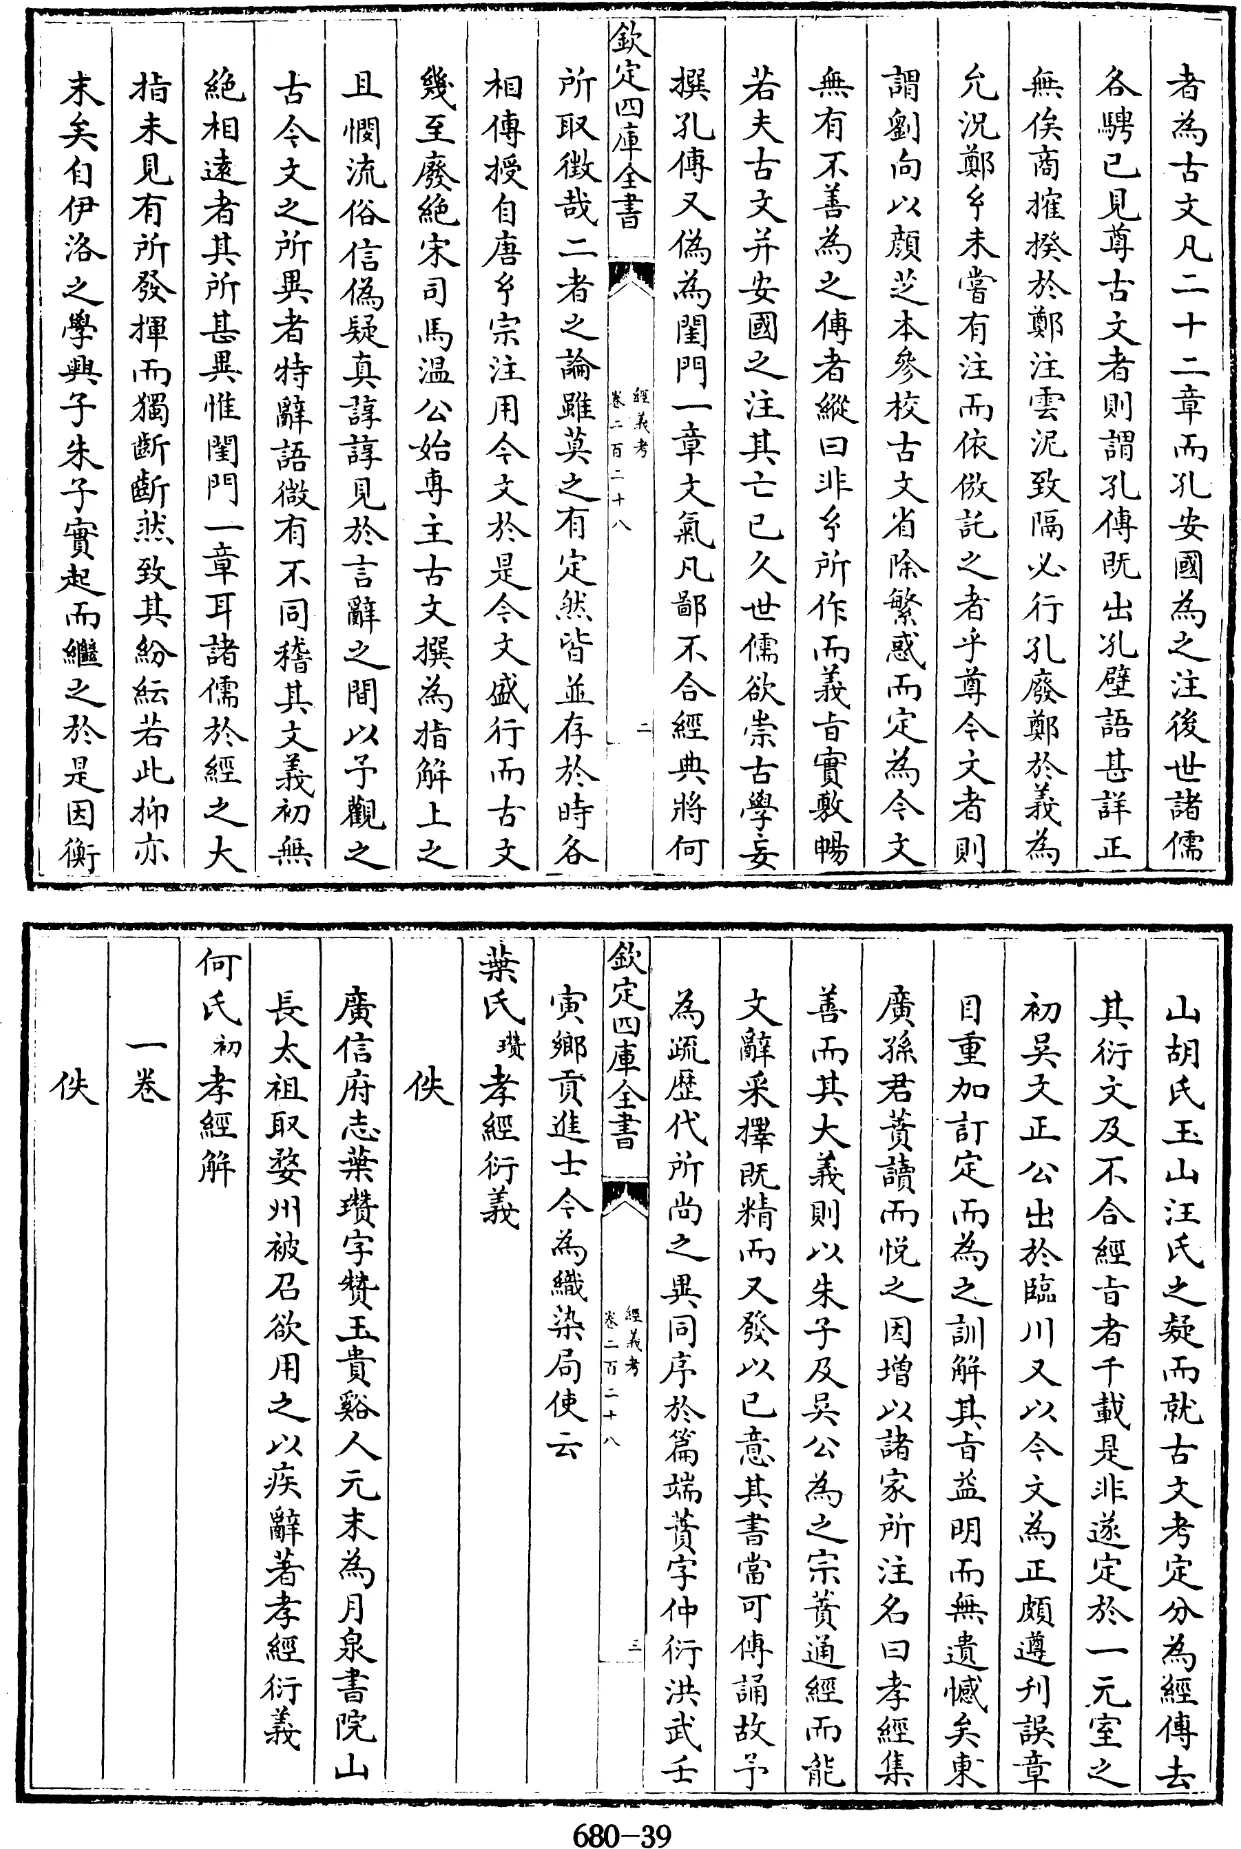 者為古文凡二十二章而孔安國為之注後世諸儒
各騁已見尊古文者則謂孔傳既出孔壁語甚詳正
無俟商搉揆於鄭注雲泥致隔必行孔廢鄭於義為
允況鄭𤣥未嘗有注而依倣託之者乎尊今文者則
謂劉向以顔芝本參校古文省除繁惑而定為今文
無有不善為之傳者縱曰非𤣥所作而義㫖實敷暢
若夫古文并安國之注其亡已久世儒欲崇古學妄
撰孔傳又偽為閨門一章文氣凡鄙不合經典將何
欽定四庫全書
經義考
卷二百二十八
二
所取徴哉二者之論雖莫之有定然皆並存於時各
相傳授自唐𤣥宗注用今文於是今文盛行而古文
幾至廢絶宋司馬温公始專主古文撰為指解上之
且憫流俗信偽疑真諄諄見於言辭之間以予觀之
古今文之所異者特辭語微有不同稽其文義初無
絶相遠者其所甚異惟閨門一章耳諸儒於經之大
指未見有所發揮而獨斷斷然致其紛紜若此抑亦
末矣自伊洛之學興子朱子實起而繼之於是因衡
山胡氏玉山汪氏之疑而就古文考定分為經傳去
其衍文及不合經㫖者千載是非遂定於一元室之
初吳文正公出於臨川又以今文為正頗遵刋誤章
目重加訂定而為之訓解其㫖益明而無遺憾矣東
廣孫君蕡讀而悦之因增以諸家所注名曰孝經集
善而其大義則以朱子及吳公為之宗蕡通經而能
文辭采擇既精而又發以已意其書當可傳誦故予
為疏歴代所尚之異同序於篇端蕡字仲衍洪武壬
欽定四庫全書
經義考
卷二百二十八
三
寅鄉貢進士今為織染局使云
葉氏瓚孝經衍義
佚
廣信府志葉瓚字贊玉貴谿人元末為月泉書院山
長太祖取婺州被召欲用之以疾辭著孝經衍義
何氏初孝經解
一卷
佚
680-39